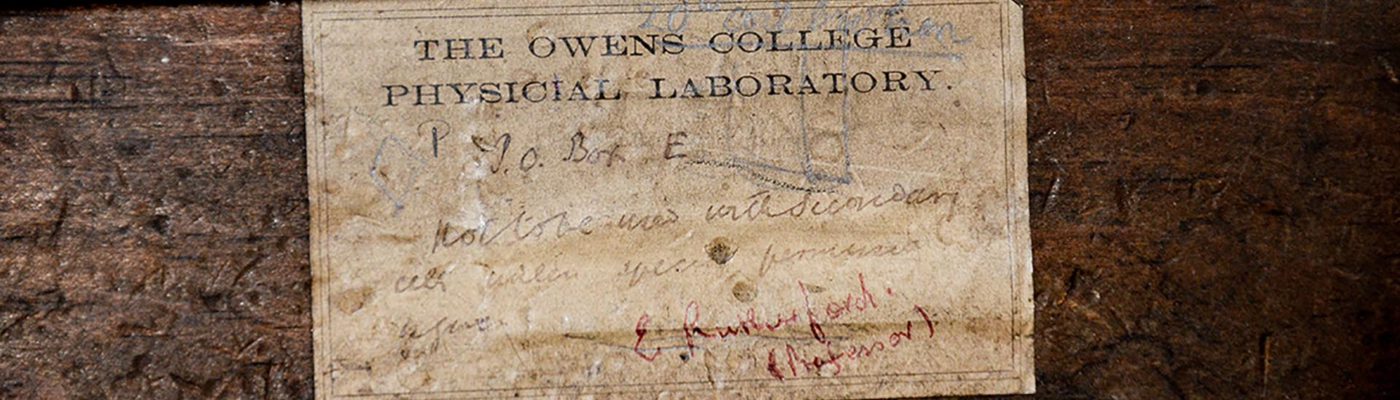 THE OWENS COLLEGE
PHYSICIAL LABORATORY.
P P.O. Box E
Not to be used with Secondary
cells unless special permission
is given
E Rutherford.
(Professor)